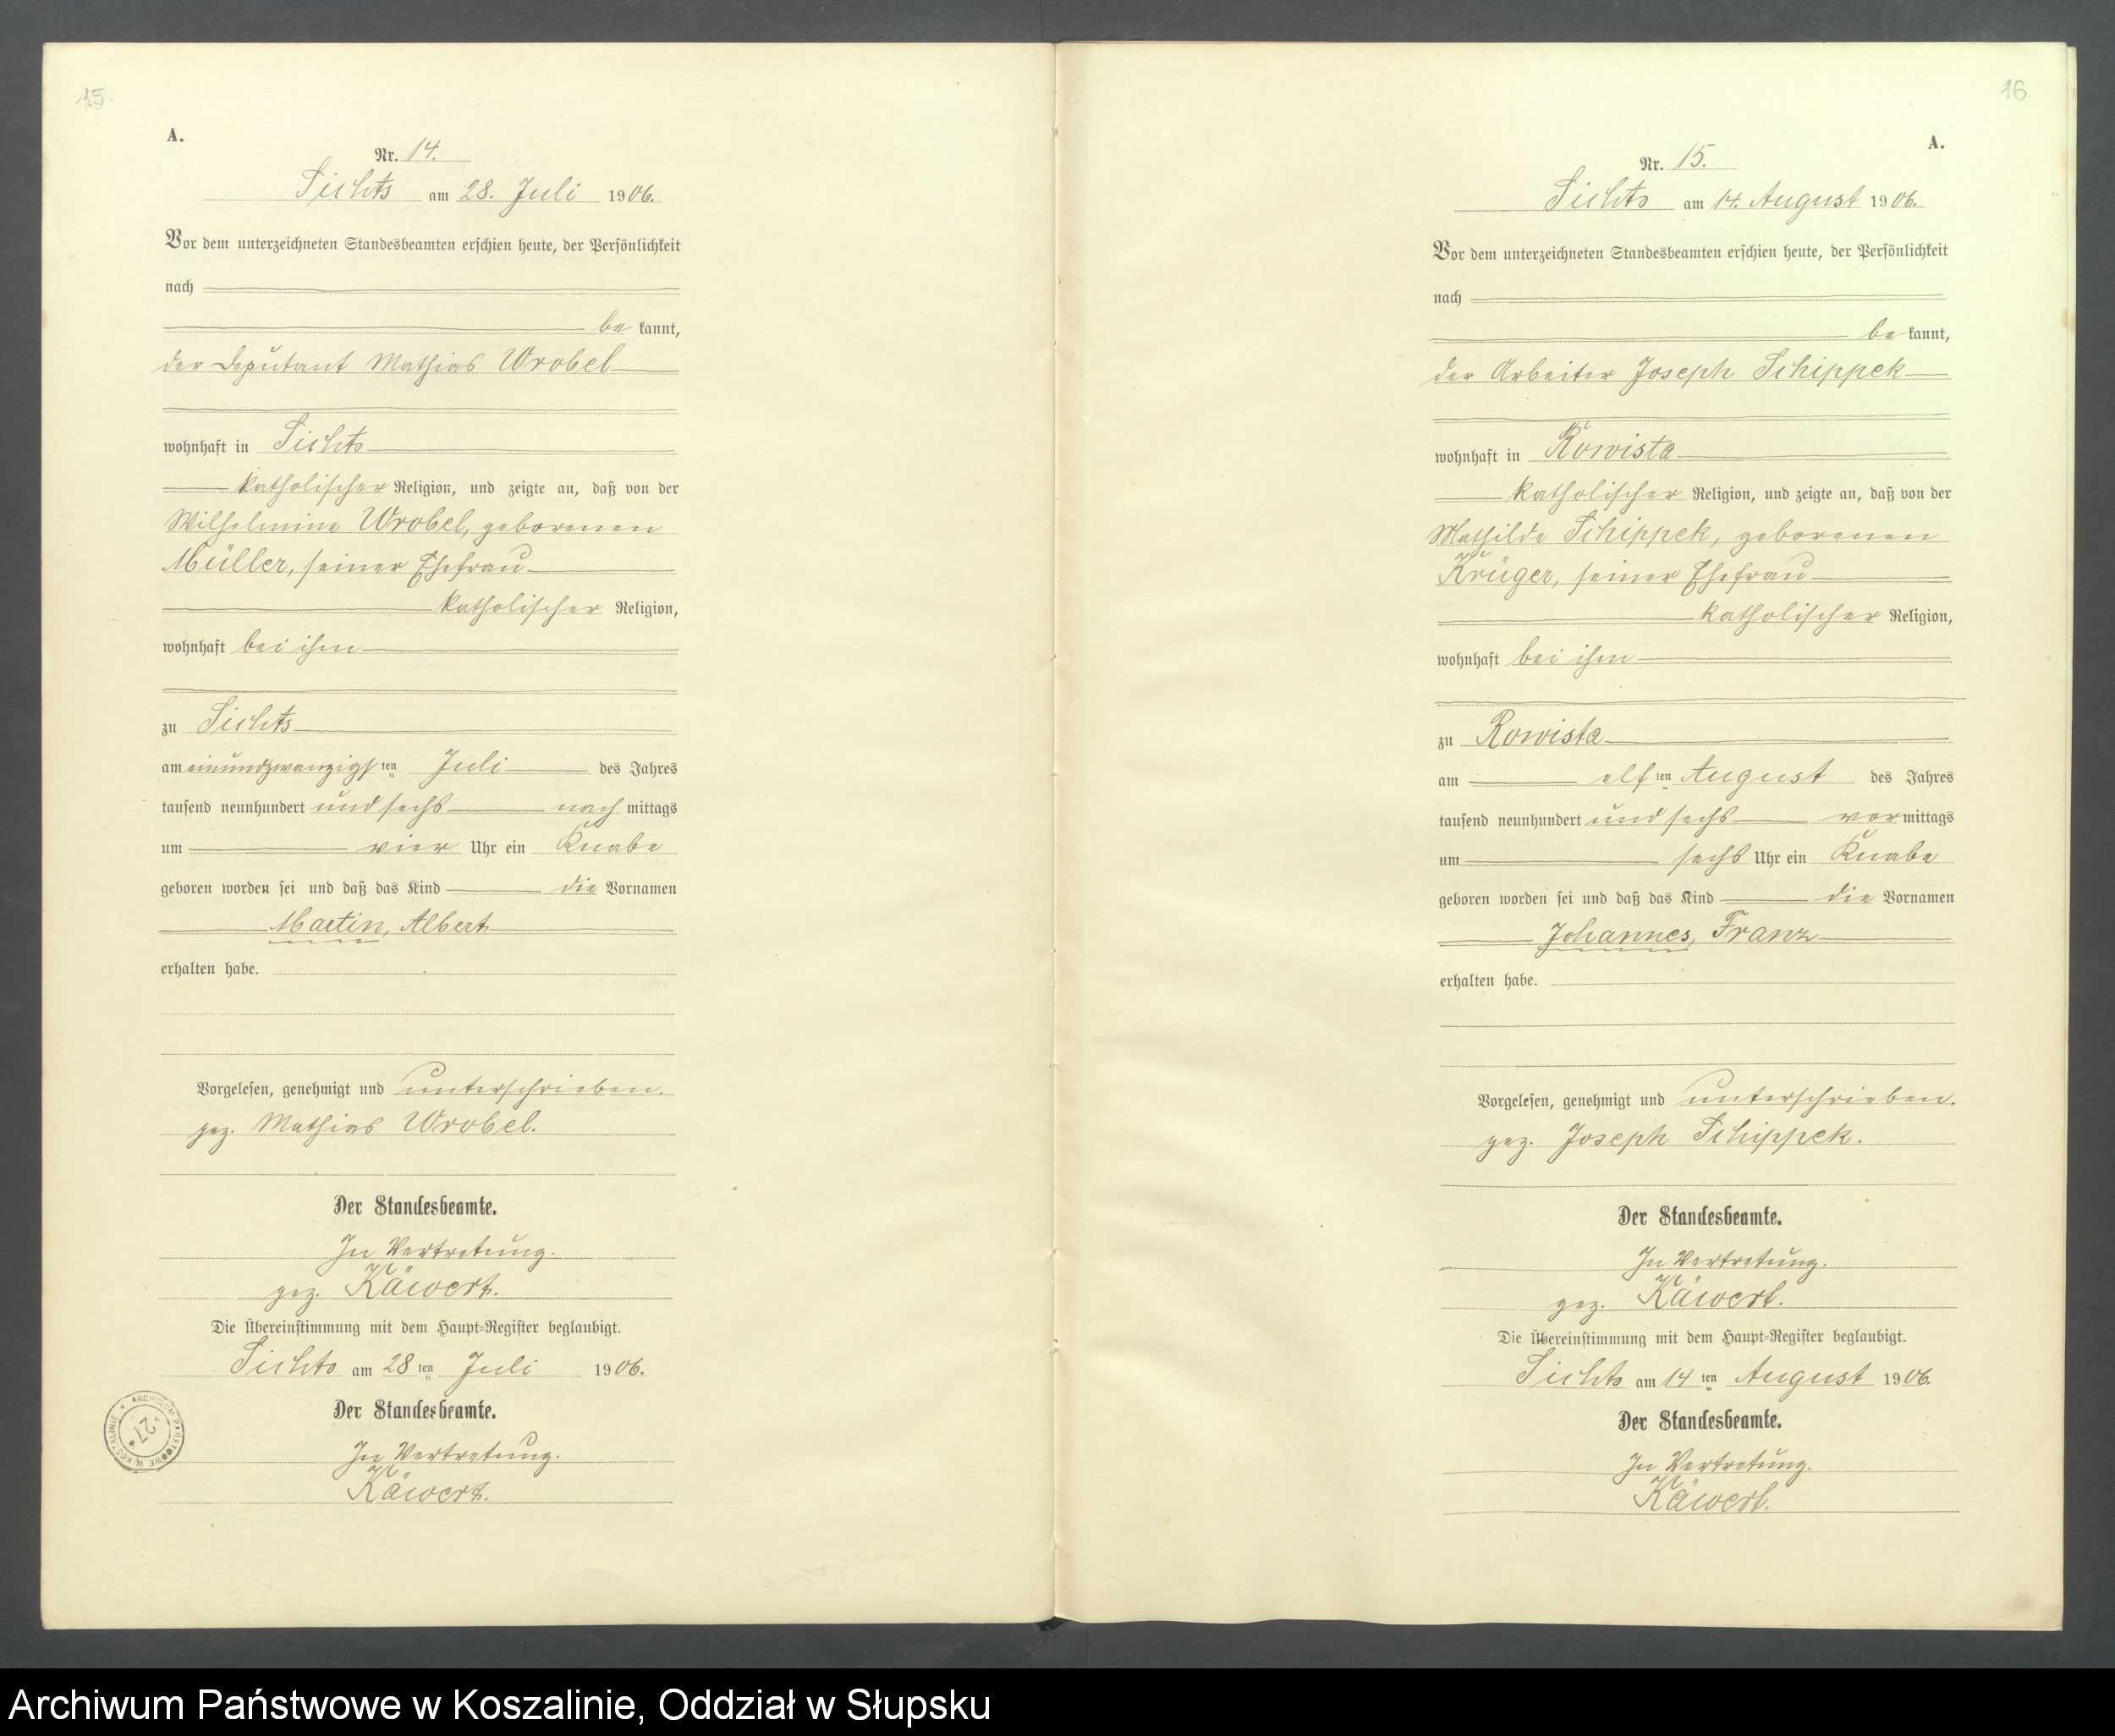 15.
A.
Nr. 14.
Sichts am 28. Juli 1906.
Vor dem unterzeichneten Standesbeamten erschien heute, der Persönlichkeit
nach
be kannt,
der Deputant Mathias Wrobel
wohnhaft in Sichts
katholischer Religion, und zeigte an, daß von der
Wilhelmine Wrobel, geborenen
Müller, seiner Ehefrau
katholischer Religion,
wohnhaft bei ihm
zu Sichts
am einundzwanzigsten Juli des Jahres
tausend neunhundert und sechs nachmittags
um vier Uhr ein Knabe
geboren worden sei und daß das Kind die Vornamen
Martin, Albert
erhalten habe.
Vorgelesen, genehmigt und unterschrieben.
gez. Mathias Wrobel.
Der Standesbeamte.
In Vertretung.
gez. Käwert.
Die Übereinstimmung mit dem Haupt-Register beglaubigt.
Sichts am 28ten Juli 1906.
Der Standesbeamte.
In Vertretung.
Käwert.
ARCHIWUM PAŃSTWOWE W KOSZALINIE
27
16.
A.
Nr. 15.
Sichts am 14. August 1906.
Vor dem unterzeichneten Standesbeamten erschien heute, der Persönlichkeit
nach
be kannt,
der Arbeiter Joseph Schippek
wohnhaft in Rowista
katholischer Religion, und zeigte an, daß von der
Mathilde Schippek, geborenen
Krüger, seiner Ehefrau
katholischer Religion,
wohnhaft bei ihm
zu Rowista
am elften August des Jahres
tausend neunhundert und sechs vormittags
um sechs Uhr ein Knabe
geboren worden sei und daß das Kind die Vornamen
Johannes, Franz
erhalten habe.
Vorgelesen, genehmigt und unterschrieben.
gez. Joseph Schippek.
Der Standesbeamte.
In Vertretung.
gez. Käwert.
Die Übereinstimmung mit dem Haupt-Register beglaubigt.
Sichts am 14ten August 1906.
Der Standesbeamte.
In Vertretung.
Käwert.
Archiwum Państwowe w Koszalinie, Oddział w Słupsku